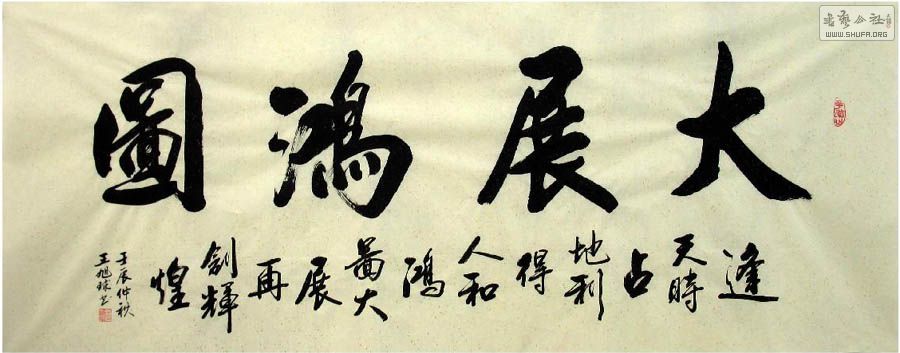 大展鴻圖
逢天時占地利得人和鴻圖大展再創輝煌
壬辰仲秋
王旭球書
WWW.SHUFA.ORG